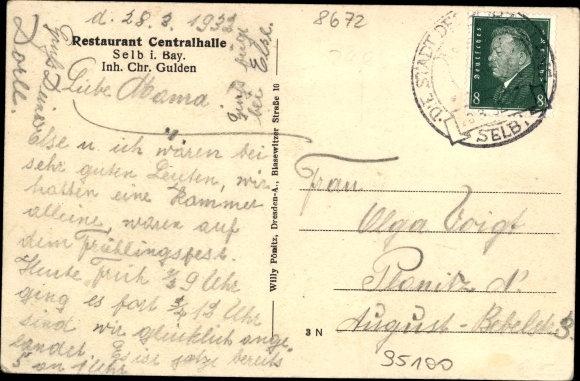 d. 28.3. 1932
8672
Restaurant Centralhalle
Selb i. Bay.
Inh. Chr. Gulden
Liebe Mama
Else u. ich wären bei
sehr guten Leuten, wir
hatten eine Kammer
alleine, waren auf
dem Frühlingsfest.
Heute Früh 1/2 9 Uhr
ging es fort 3/4 12 Uhr
sind wir glücklich ange
landet. Es ist jetzt bereits
5 an 1 Uhr
Dorle.
Willy Pönitz, Dresden-A., Blasewitzer Straße 10
3 N
Deutsches Reich
8 8
DIE STADT DES
SELB
Frau
Olga Voigt
Planitz
August-Bebelstr. 3.
95100